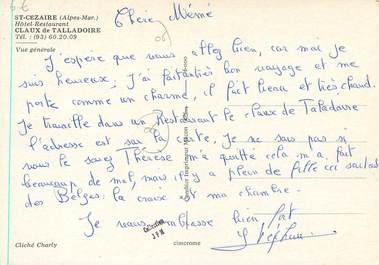 ST-CEZAIRE (Alpes-Mar.)
Hôtel-Restaurant
CLAUX de TALLADOIRE
Tél : (93) 60.20.09
Vue générale
06
Chère Mémé
J'espère que vous allez bien, car moi je
suis heureux. J'ai fait très bon voyage et me
porte comme un charme, il fait beau et très chaud.
Je travaille dans un Restaurant le claux de Taladoire
l'adresse est sur la carte. Je ne sais pas si
vous le savez Thérèse m'a quitté cela m'a fait
beaucoup de mal, mais il y a plein de fille ici surtout
des Belges. la croix est ma chambre.
Je vous embrasse bien fort
Stéphane
Cliché Charly
cimcrome
Collection